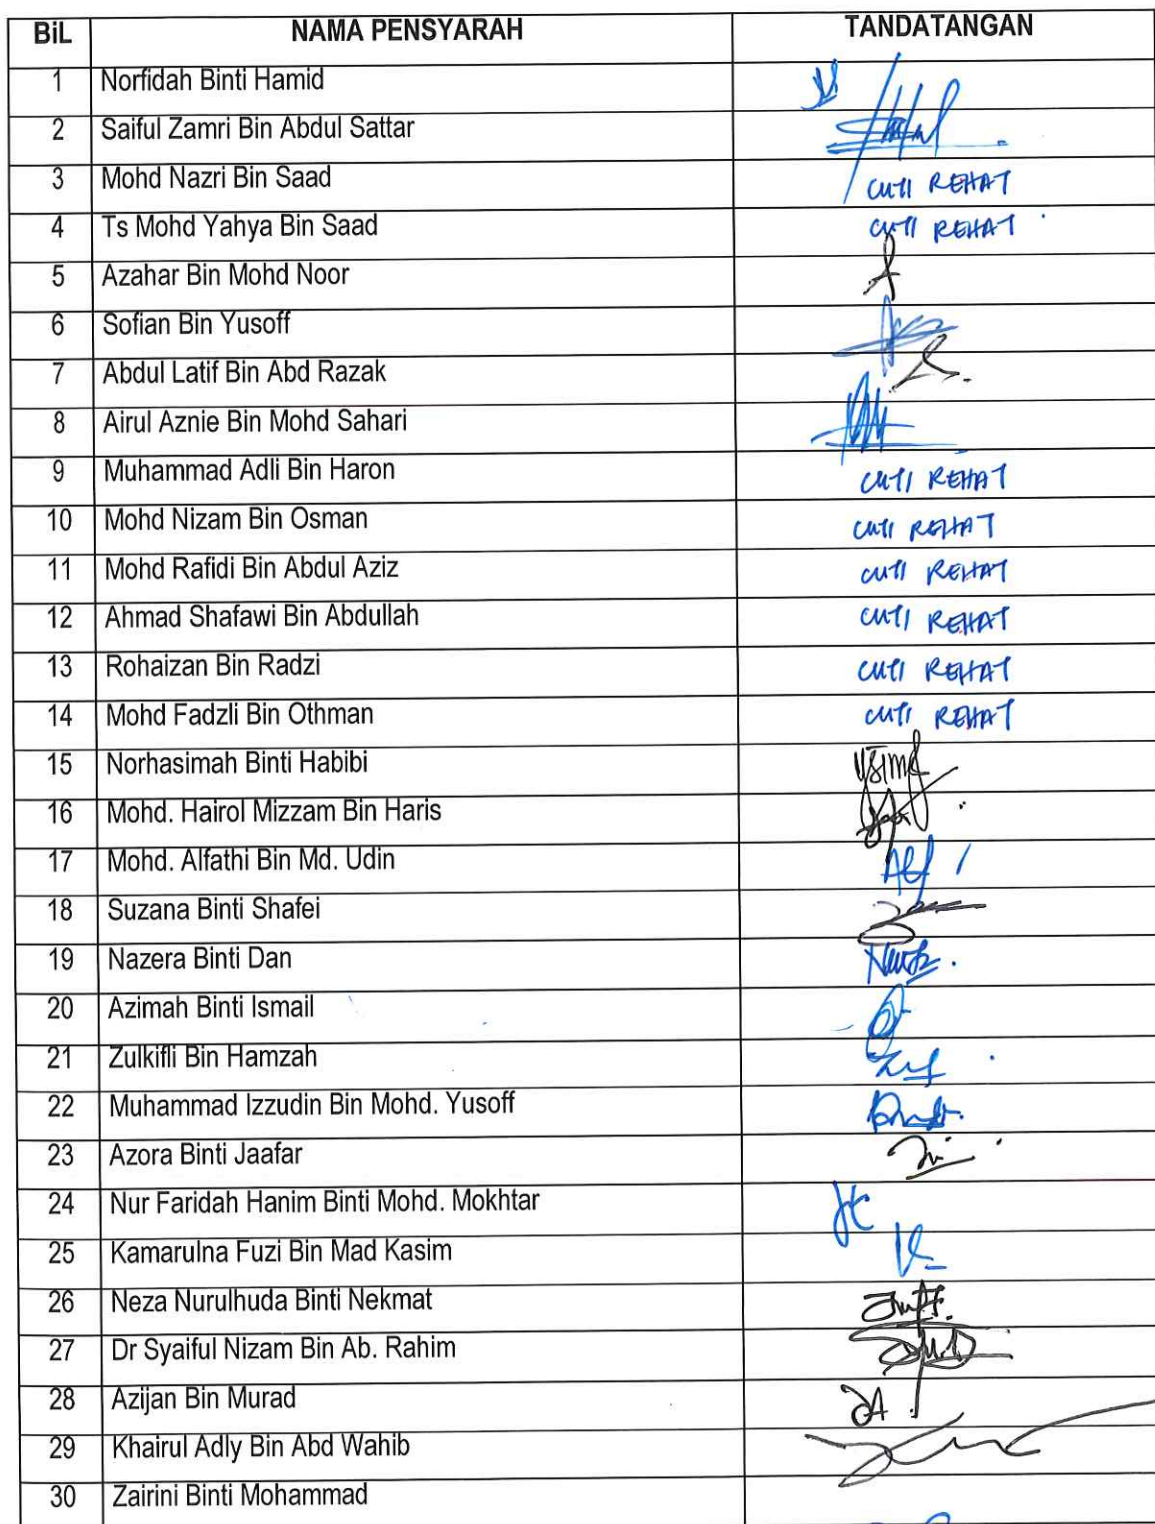 BiL NAMA PENSYARAH TANDATANGAN
1 Norfidah Binti Hamid
2 Saiful Zamri Bin Abdul Sattar
3 Mohd Nazri Bin Saad CUTI REHAT
4 Ts Mohd Yahya Bin Saad CUTI REHAT
5 Azahar Bin Mohd Noor
6 Sofian Bin Yusoff
7 Abdul Latif Bin Abd Razak
8 Airul Aznie Bin Mohd Sahari
9 Muhammad Adli Bin Haron CUTI REHAT
10 Mohd Nizam Bin Osman CUTI REHAT
11 Mohd Rafidi Bin Abdul Aziz CUTI REHAT
12 Ahmad Shafawi Bin Abdullah CUTI REHAT
13 Rohaizan Bin Radzi CUTI REHAT
14 Mohd Fadzli Bin Othman CUTI REHAT
15 Norhasimah Binti Habibi
16 Mohd. Hairol Mizzam Bin Haris
17 Mohd. Alfathi Bin Md. Udin
18 Suzana Binti Shafei
19 Nazera Binti Dan
20 Azimah Binti Ismail
21 Zulkifli Bin Hamzah
22 Muhammad Izzudin Bin Mohd. Yusoff
23 Azora Binti Jaafar
24 Nur Faridah Hanim Binti Mohd. Mokhtar
25 Kamarulna Fuzi Bin Mad Kasim
26 Neza Nurulhuda Binti Nekmat
27 Dr Syaiful Nizam Bin Ab. Rahim
28 Azijan Bin Murad
29 Khairul Adly Bin Abd Wahib
30 Zairini Binti Mohammad